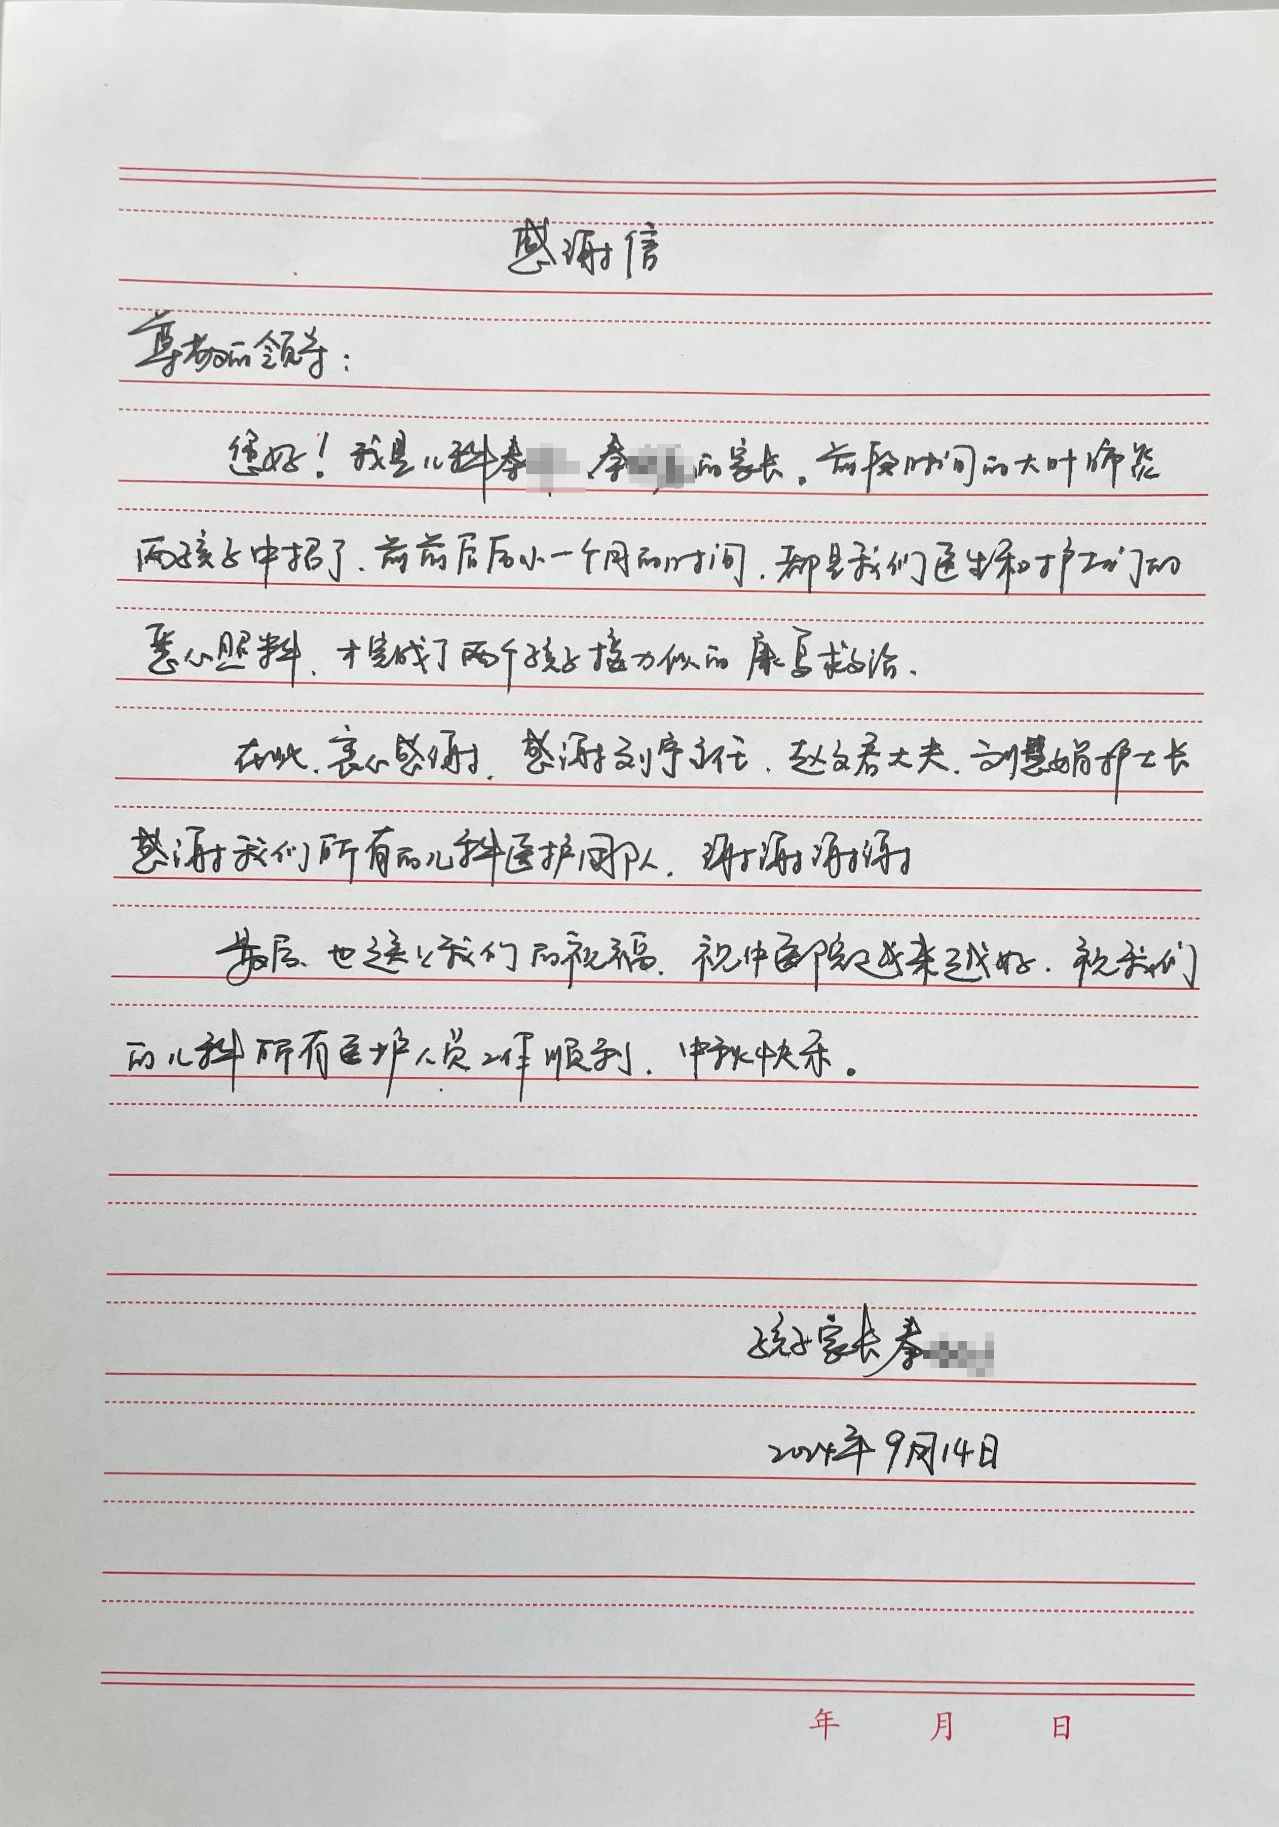 感谢信
尊敬的领导：
您好！我是儿科秦 秦 的家长。前段时间的大叶肺炎
两孩子中招了、前前后后小一个月的时间、都是我们医生和护士们的
悉心照料、才完成了两个孩子接力似的康复救治、
在此、衷心感谢、感谢刘宇主任、赵文君大夫、刘慧娟护士长
感谢我们所有的儿科医护团队、谢谢谢谢
最后、也送上我们的祝福、祝中医院越来越好、祝我们
的儿科所有医护人员工作顺利、中秋快乐。
孩子家长秦
2024年9月14日
年 月 日